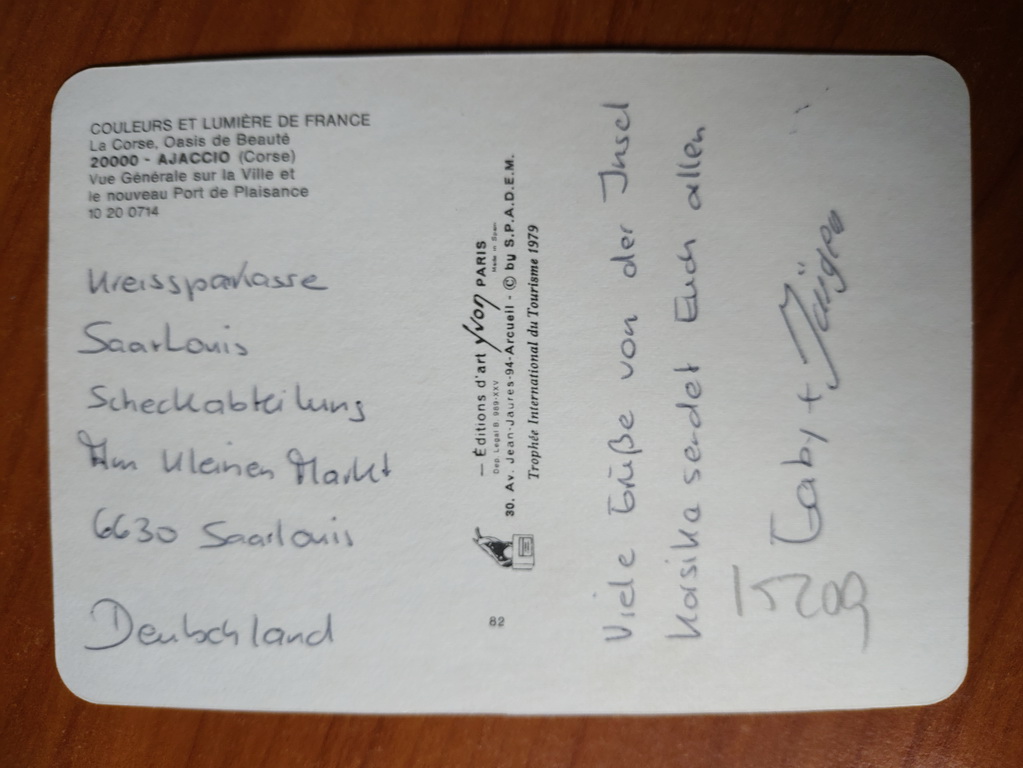 COULEURS ET LUMIÈRE DE FRANCE
La Corse, Oasis de Beauté
20000 - AJACCIO (Corse)
Vue Générale sur la Ville et
le nouveau Port de Plaisance
10 20 0714
Kreissparkasse
SaarLouis
Scheckabteilung
Am Kleinen Markt
6630 Saarlouis
Deutschland
— Éditions d'art yvon PARIS
Made in Spain
Dep. Legal B. 969-XXV
30. Av. Jean-Jaures-94-Arcueil - © by S.P.A.D.E.M.
Trophée International du Tourisme 1979
82
Viele Grüße von der Insel
Korsika sendet Euch allen
Gaby + Jürgen